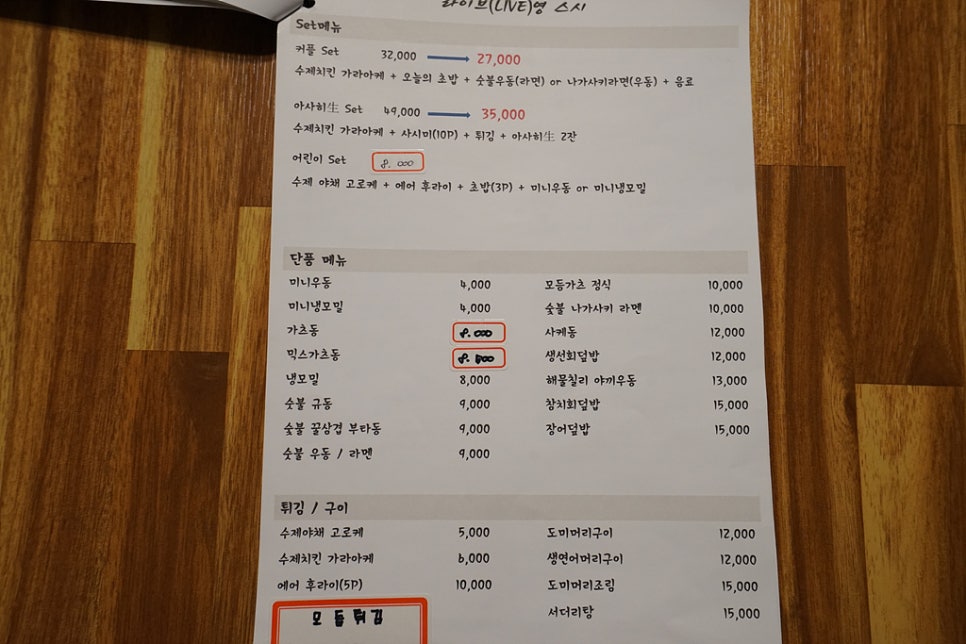 라이브(LIVE)영 스시
Set메뉴
커플 Set 32,000 27,000
수제치킨 가라아케 + 오늘의 초밥 + 숯불우동(라면) or 나가사키라면(우동) + 음료
아사히生 Set 49,000 35,000
수제치킨 가라아케 + 사시미(10P) + 튀김 + 아사히生 2잔
어린이 Set 8.000
수제 야채 고로케 + 에어 후라이 + 초밥(3P) + 미니우동 or 미니냉모밀
단품 메뉴
미니우동 4,000 모듬가츠 정식 10,000
미니냉모밀 4,000 숯불 나가사키 라멘 10,000
가츠동 8.000 사케동 12,000
믹스가츠동 생선회덮밥 12,000
냉모밀 8,000 해물칠리 야끼우동 13,000
숯불 규동 9,000 참치회덮밥 15,000
숯불 꿀삼겹 부타동 9,000 장어덮밥 15,000
숯불 우동 / 라멘 9,000
튀김 / 구이
수제야채 고로케 5,000 도미머리구이 12,000
수제치킨 가라아케 6,000 생연어머리구이 12,000
에어 후라이(5P) 10,000 도미머리조림 15,000
모듬튀김 서더리탕 15,000